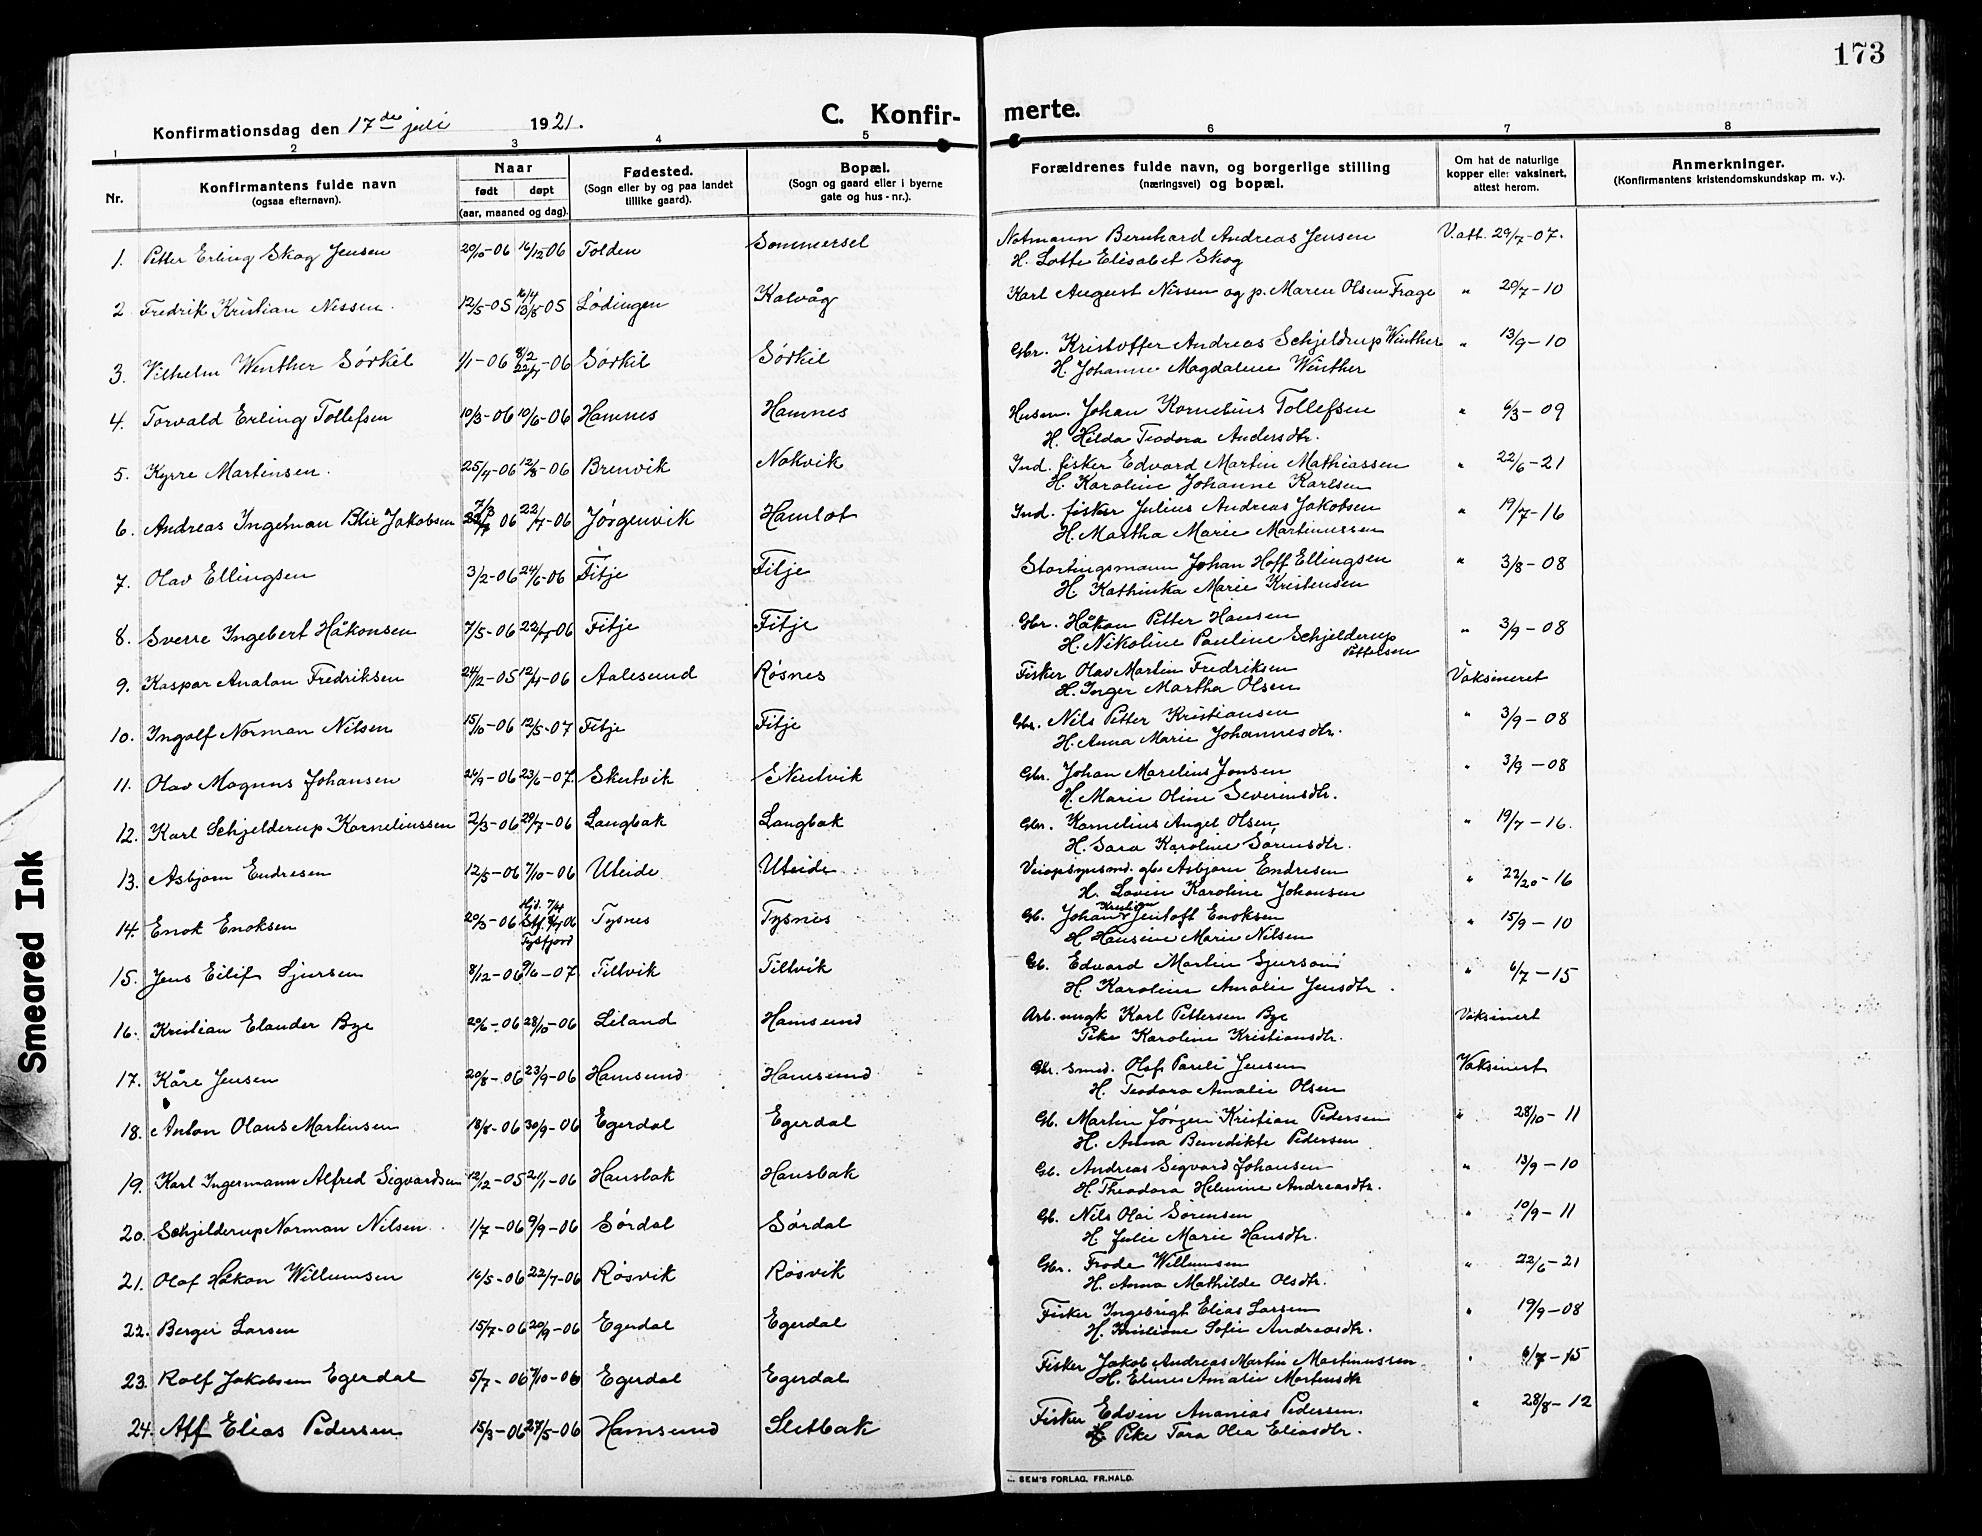 173
Konfirmationsdag den 17de juli 1921.
C. Konfir- merte.
1 2 3 4 5 6 7 8
Nr.
Konfirmantens fulde navn
(ogsaa efternavn).
Naar
født døpt
(aar, maaned og dag).
Fødested.
(Sogn eller by og paa landet
tillike gaard).
Bopæl.
(Sogn og gaard eller i byerne
gate og hus-nr.).
Forældrenes fulde navn, og borgerlige stilling
(næringsvei) og bopæl.
Om hat de naturlige
kopper eller vaksinert,
attest herom.
Anmerkninger.
(Konfirmantens kristendomskundskap m. v.).
1. Petter Erling Skog Jensen 20/10-06 16/12 06 Tolden Sommersel Notmann Bernhard Andreas Jensen V.att. 29/7-07.
H. Lotte Elisabet Skog
2 Fredrik Kristian Nissen. 12/5-05 16/4 13/8-05 Lødingen Kalvåg Karl August Nissen og p. Maren Olsen Frage " 20/7-10
3. Vilhelm Winther Sørkil 1/1-06 8/2 22/7-06 Sørkil Sørkil Gbr. Kristoffer Andreas Schjeldrup Winther " 13/9-10
H. Johanne Magdalene Winther
4. Torvald Erling Tollefsen 10/3-06 10/6-06 Hamnes Hamnes Husm. Johan Kornelius Tollefsen " 6/3-09
H. Hilda Teodora Andersdtr.
5. Kyrre Martinsen. 25/4-06 12/8-06 Brenvik Nakvik Ind. fisker Edvard Martin Mathiassen " 22/6-21
H. Karoline Johanne Karlsen
6. Andreas Ingelman Blix Jakobsen 7/3 06 22/7-06 Jørgenvik Hamlot Ind. fisker Julius Andreas Jakobsen " 19/7-16
H. Martha Marie Martinussen
7. Olav Ellingsen 3/2-06 24/6-06 Fitje Fitje Stortingsmann Johan Hoff Ellingsen " 3/8-08
H. Kathinka Marie Kristensen
8. Sverre Ingebert Håkonsen 7/5-06 22/7-06 Fitje Fitje Gbr. Håkon Petter Hansen " 3/9-08
H. Nikoline Pauline Schjelderup
Pettersen
9. Kaspar Analon Fredriksen 24/12-05 12/4-06 Aalesund Røsnes Fisker Olav Martin Fredriksen Vaksineret
H. Inger Martha Olsen
10. Ingolf Norman Nilsen 15/10-06 12/5-07 Fitje Fitje Gbr. Nils Petter Kristiansen " 3/9-08
H. Anna Marie Johannesdtr.
11. Olav Magnus Johansen 26/9-06 23/6-07 Skutvik Skutvik Gbr. Johan Marelius Jonsen " 3/9-08
H. Marie Oline Severinsdtr.
12. Karl Schjelderup Korneliussen 2/3-06 29/7-06 Langbak Langbak Gbr. Kornelius Angel Olsen " 19/7-16.
H. Sara Karoline Sørensdtr.
13. Asbjørn Endresen 12/5-06 7/10-06 Uteide Uteide Veiopsynsmd. gbr. Asbjørn Endresen " 22/20-16
H. Lovise Karoline Johansen
14. Enok Enoksen 20/3-06 Hjd. 7/4 Stf. 8/7 06 Tysfjord Tysnes Tysnes Gb. Johan Kristian Jentoft Enoksen " 15/9-10
H Hansine Marie Nilsen
15. Jens Eilif Sjursen 8/12-06 9/6-07 Tiltvik Tiltvik Gb. Edvard Martin Sjursen " 6/7-15
H. Karoline Amalie Jensdtr.
16. Kristian Elander Bye 20/6-06 28/10-06 Leland Hamsund Arb. ungk Karl Pettersen Bye Vaksinert
Pike Karoline Kristiansdtr.
17. Kåre Jensen 20/8-06 23/9-06 Hamsund Hamsund Gbr. smed. Olaf Pareli Jensen Vaksinert
H. Teodora Amalie Olsen
18. Anton Olaus Martinsen 18/8-06 30/9-06 Egerdal Egerdal Gb. Martin Jørgen Kristian Pedersen " 28/10-11
H. Anna Benedikte Pedersen
19. Karl Ingermann Alfred Sigvardsen 12/12-05 21/1-06 Hansbak Hansbak Gb. Andreas Sigvard Johansen " 13/9-10
H. Theodora Helmine Andreasdtr.
20. Schjelderup Norman Nilsen. 1/7-06 9/9-06 Sørdal Sørdal Gb. Nils Olai Sørensen " 10/9-11
H. Julie Marie Hansdtr.
21. Olaf Håkon Willumsen 16/5-06 22/7-06 Røsvik Røsvik Gbr. Frode Willumsen " 22/6-21
H. Anna Mathilde Olsdtr.
22. Berger Larsen 15/7-06 20/9-06 Egerdal Egerdal Fisker Ingebrigt Elias Larsen " 19/9-08
H. Kristiane Sofie Andreasdtr.
23. Rolf Jakobsen Egerdal 5/7-06 7/10-06 Egerdal Egerdal Fisker Jakob Andreas Martin Martinussen " 6/7-15
H. Eline Amalie Mortensdtr
24. Alf Elias Pedersen 15/3-06 27/5-06 Hamsund Sletbak Fisker Edvin Ananias Pedersen. " 28/8-12
Pike Tora Olea Eliasdtr.
SEM'S FORLAG, FR.HALD.
Smeared Ink